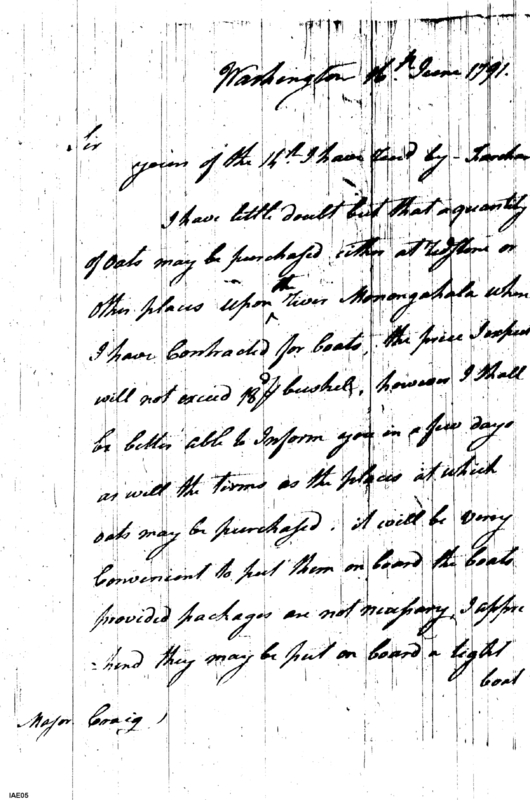 Washington 16th June 1791.
Sir
yours of the 14th I have recd by
I have little doubt but that a quantity
of oats may be purchased either at redstone or
other places upon the river Monongahala where
I have Contracted for boats, the price I expect
will not exceed 18d bushel, however I shall
be better able to Inform you in a few days
as well the terms as the places at which
oats may be purchased. it will be very
Convenient to put them on board the boats
provided packages are not necessary, I appre
=hend they may be put on board a tight
boat
Major Craig
IAE05